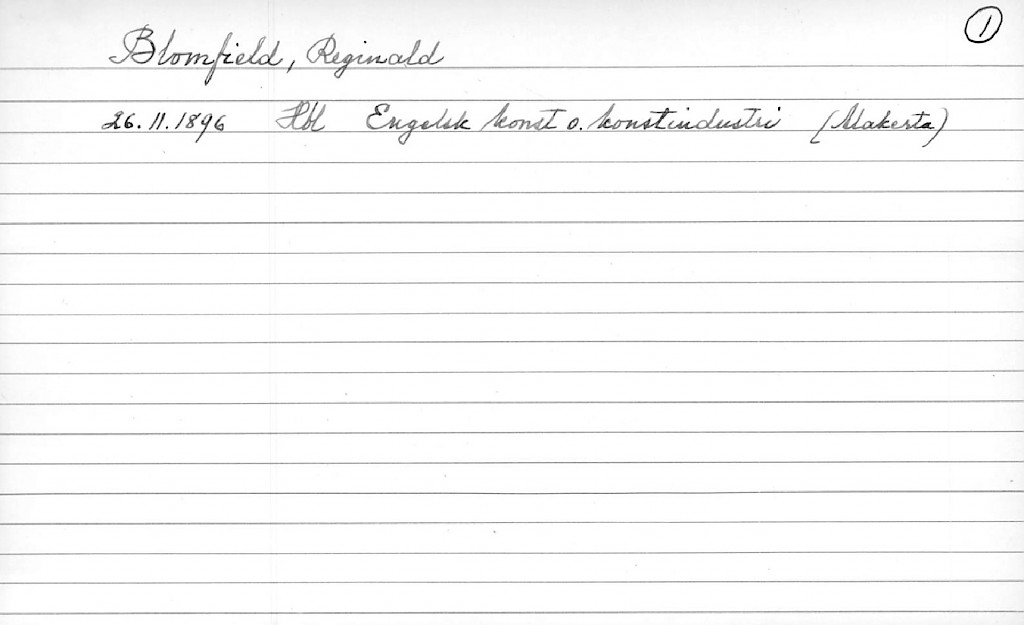 ①
Blomfield, Reginald
26.11.1896 Hbl Engelsk konst o. konstindustri (Makerta)